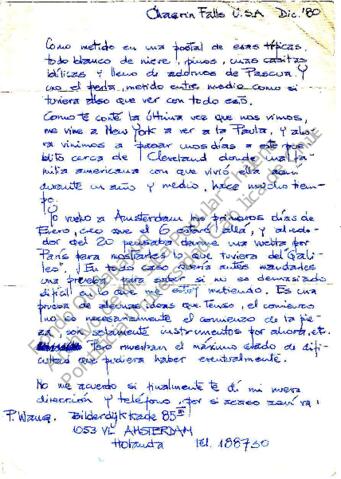 Chagrin Falls U.S.A Dic. '80
Como metido en una postal de esas típicas,
todo blanco de nieve, pinos, unas casitas
idílicas y lleno de adornos de Pascua. Y
uno el perla, metido entre medio como si
tuviera algo que ver con todo esto.
Como te conté la última vez que nos vimos,
me vine a New York a ver a la Paula, y aho-
ra vinimos a pasar unos días a este pue-
blito cerca de Cleveland donde una fa-
milia americana con que vivió ella
durante un año y medio, hace mucho tiem-
po.
Yo vuelvo a Amsterdam los primeros días de
Enero, creo que el 6 estaré allá, y alrede-
dor del 20 pensaba darme una vuelta por
París para mostrarles lo que tuviera del "Gali-
leo". En todo caso quería antes mandarles
una prueba para saber si es demasiado
difícil en lo que me estoy metiendo. Es una
prueba de algunas ideas que tengo, el comienzo
no es necesariamente el comienzo de la pie-
za y son solamente instrumentos por ahora, et.
Pero muestran el máximo estado de difi-
cultad que pudiera haber eventualmente.
No me acuerdo si finalmente te dí mi nueva
dirección y teléfono, por si acaso aquí va:
P. Wang. Bilderdijkkade 85
1053 VL AMSTERDAM
Holanda Tel. 188730